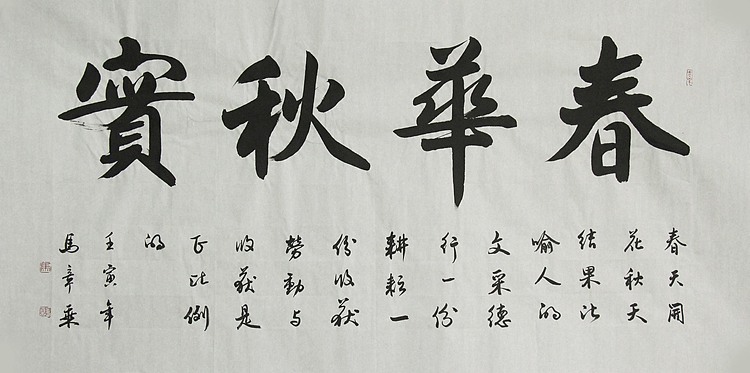 春華秋實
春天開
花秋天
结果比
喻人的
文采德
行一份
耕耘一
份收获
勞動与
收获是
正比例
的
壬寅年
馬章乘